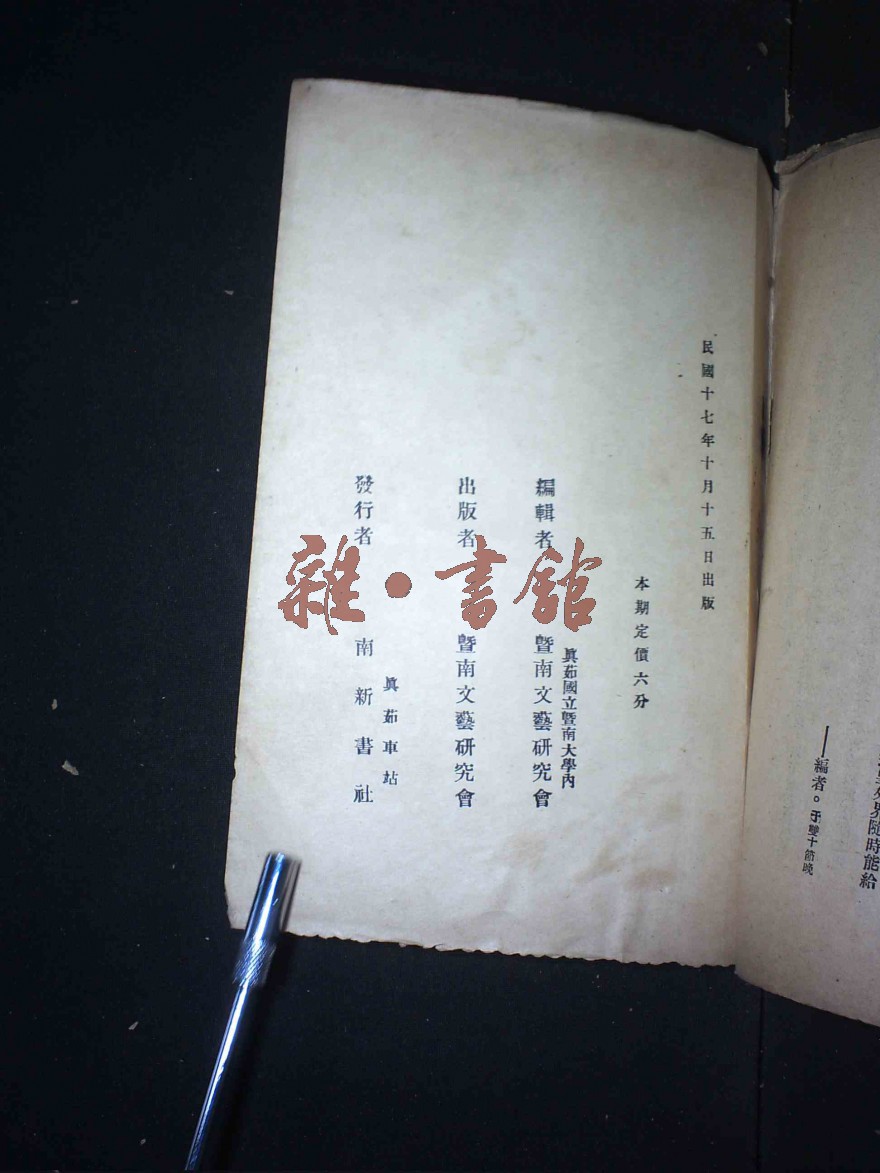 民國十七年十月十五日出版
本期定價六分
眞茹國立暨南大學內
編輯者 暨南文藝研究會
出版者 暨南文藝研究會
發行者 南新書社
眞茹車站
雜·書館
界隨時能給
——編者。于雙十節晚